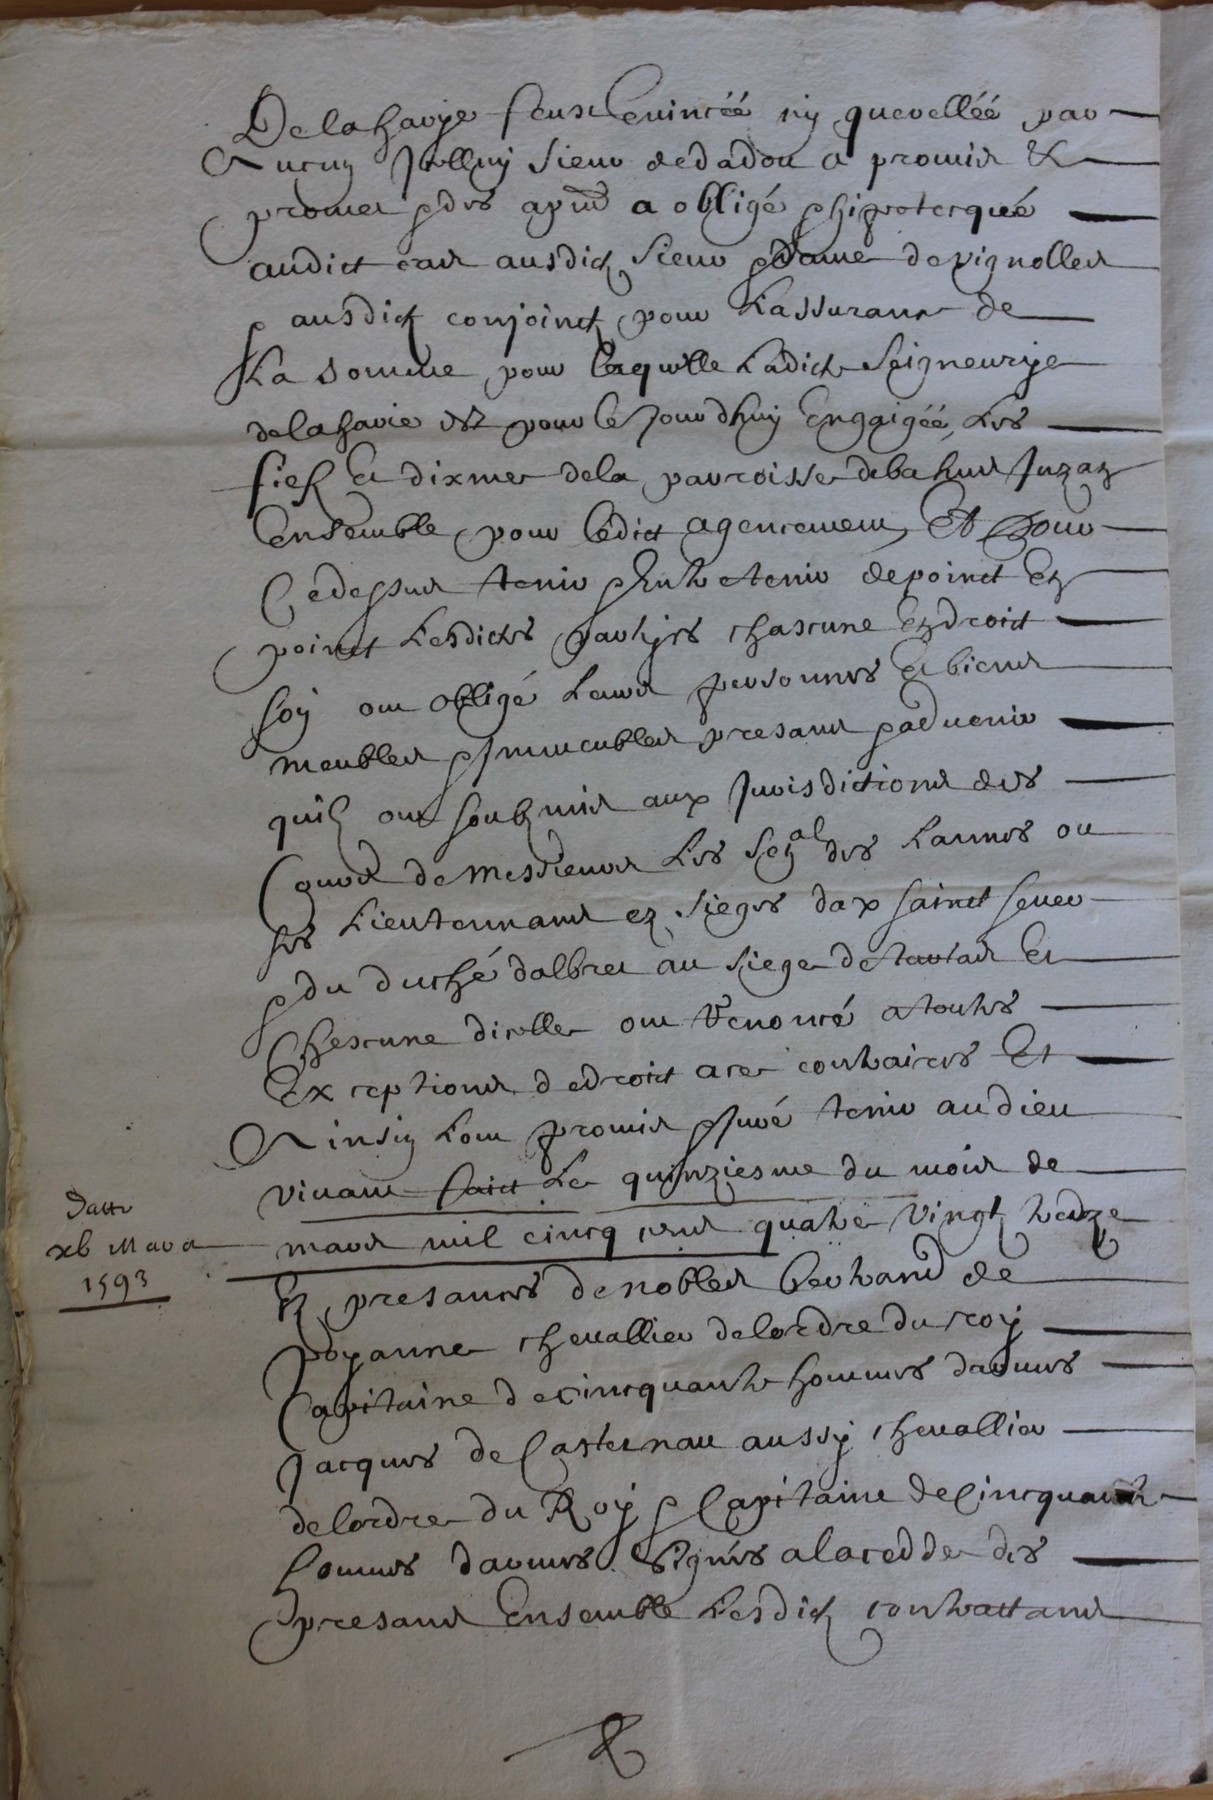 Delahaoye feust evincéé ny querelléé par
Aucun Icelluy sieur dedadou a promis &
promet & des apnt a obligé & hipotecqué
audict cas ausdictz sieur & dame de vignolles
& ausdictz conjoinctz pour Lassurance de
La somme pour laquelle Ladicte seigneurye
delahaoie est pour le Jourdhuy Engaigéé, Les
fiefz Et dixmes dela parroisse debahus Juzaz
Ensemble pour ledict agencement Et Pour
Cedessus tenir & Entretenir depoinct En
poinct Lesdictes partyes chascune Endroict
soy ont obligé Leurs personnes Et biens
meubles & Immeubles presans & advenir
quilz ont soubzmis aux Jurisdictions des
Cours de Messieurs Les Senal des Lannes ou
ses Lieutennans ez sieges dax sainct sever
& du duché dalbret au siege detartas Et
Chescune dicelle ont Renoncé atoutes
Exceptions dedroict ace contraires Et
Ainsin Lont promis & Juré tenir audieu
vivant faict Le quinziesme du mois de
mars mil cincq cens quatre vingtz tredze
En presances denobles Bertrand de
poyanne chevallier delordre du roy
Capitaine decincquante hommes darmes
Jacques de Castetnau aussy chevallier
delordre du Roy & Capitaine deCincquante
hommes darmes Signés alacedde des
presans Ensemble Lesdictz contractans
Datte
xv Mars
1593